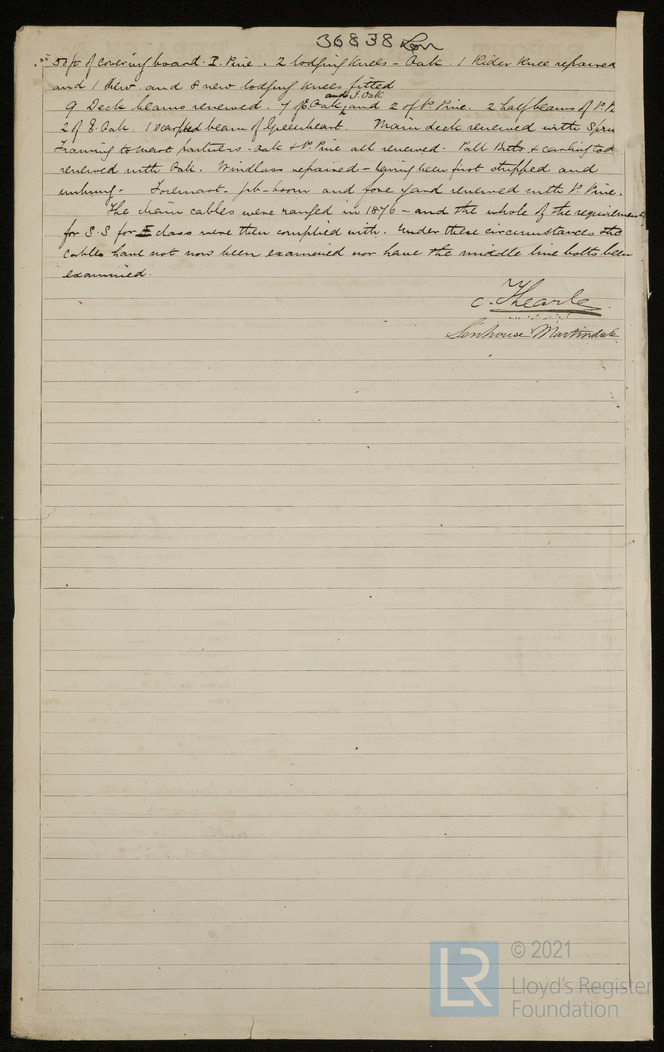 36838 Lon
50 ft of covering board - P. Pine. 2 lodging knees - Oak. 1 Rider Knee repaired
and 1 New and 8 new lodging knees fitted
9 Deck beams renewed. 7 of E. Oak and I. Oak and 2 of P. Pine. 2 half beams of P. P.
2 of E. Oak. 1 scarphed beam of Greenheart. Main deck renewed with Spru
Framing to mast partners - Oak & P. Pine all renewed. Pall Bitts & carling too
renewed with Oak. Windlass repaired - having been first stripped and
unhung - Foremast - jib-boom and fore yard renewed with P. Pine.
The chain cables were ranged in 1876 - and the whole of the requirements
for S.S for I class were then complied with. Under these circumstances the
cables have not now been examined nor have the middle line bolts been
examined.
C. Thearle.
Senhouse Martindale
© 2021
LR Lloyd's Register
Foundation